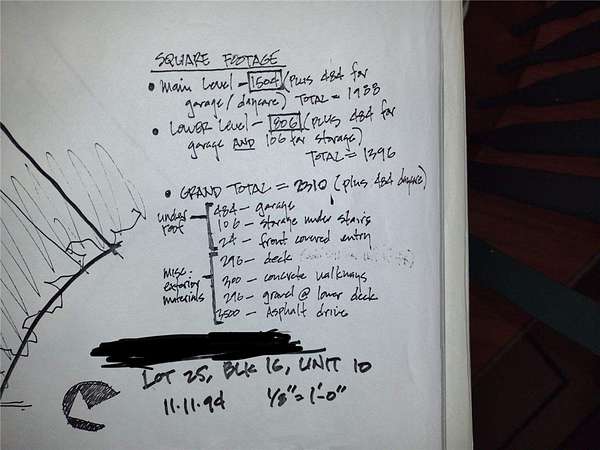 SQUARE FOOTAGE
• Main Level - 1504 (plus 484 for
garage/daycare) TOTAL = 1988
• LOWER LEVEL - 806 (plus 484 for
garage AND 106 for storage)
TOTAL = 1396
• GRAND TOTAL = 2310 (plus 484 daycare)
under roof
484 - garage
106 - storage under stairs
24 - front covered entry
misc. exterior materials
296 - deck
300 - concrete walkways
296 - gravel @ lower deck
3500 - Asphalt drive
LOT 25, BLK 16, UNIT 10
11.11.94 1/8" = 1'-0"